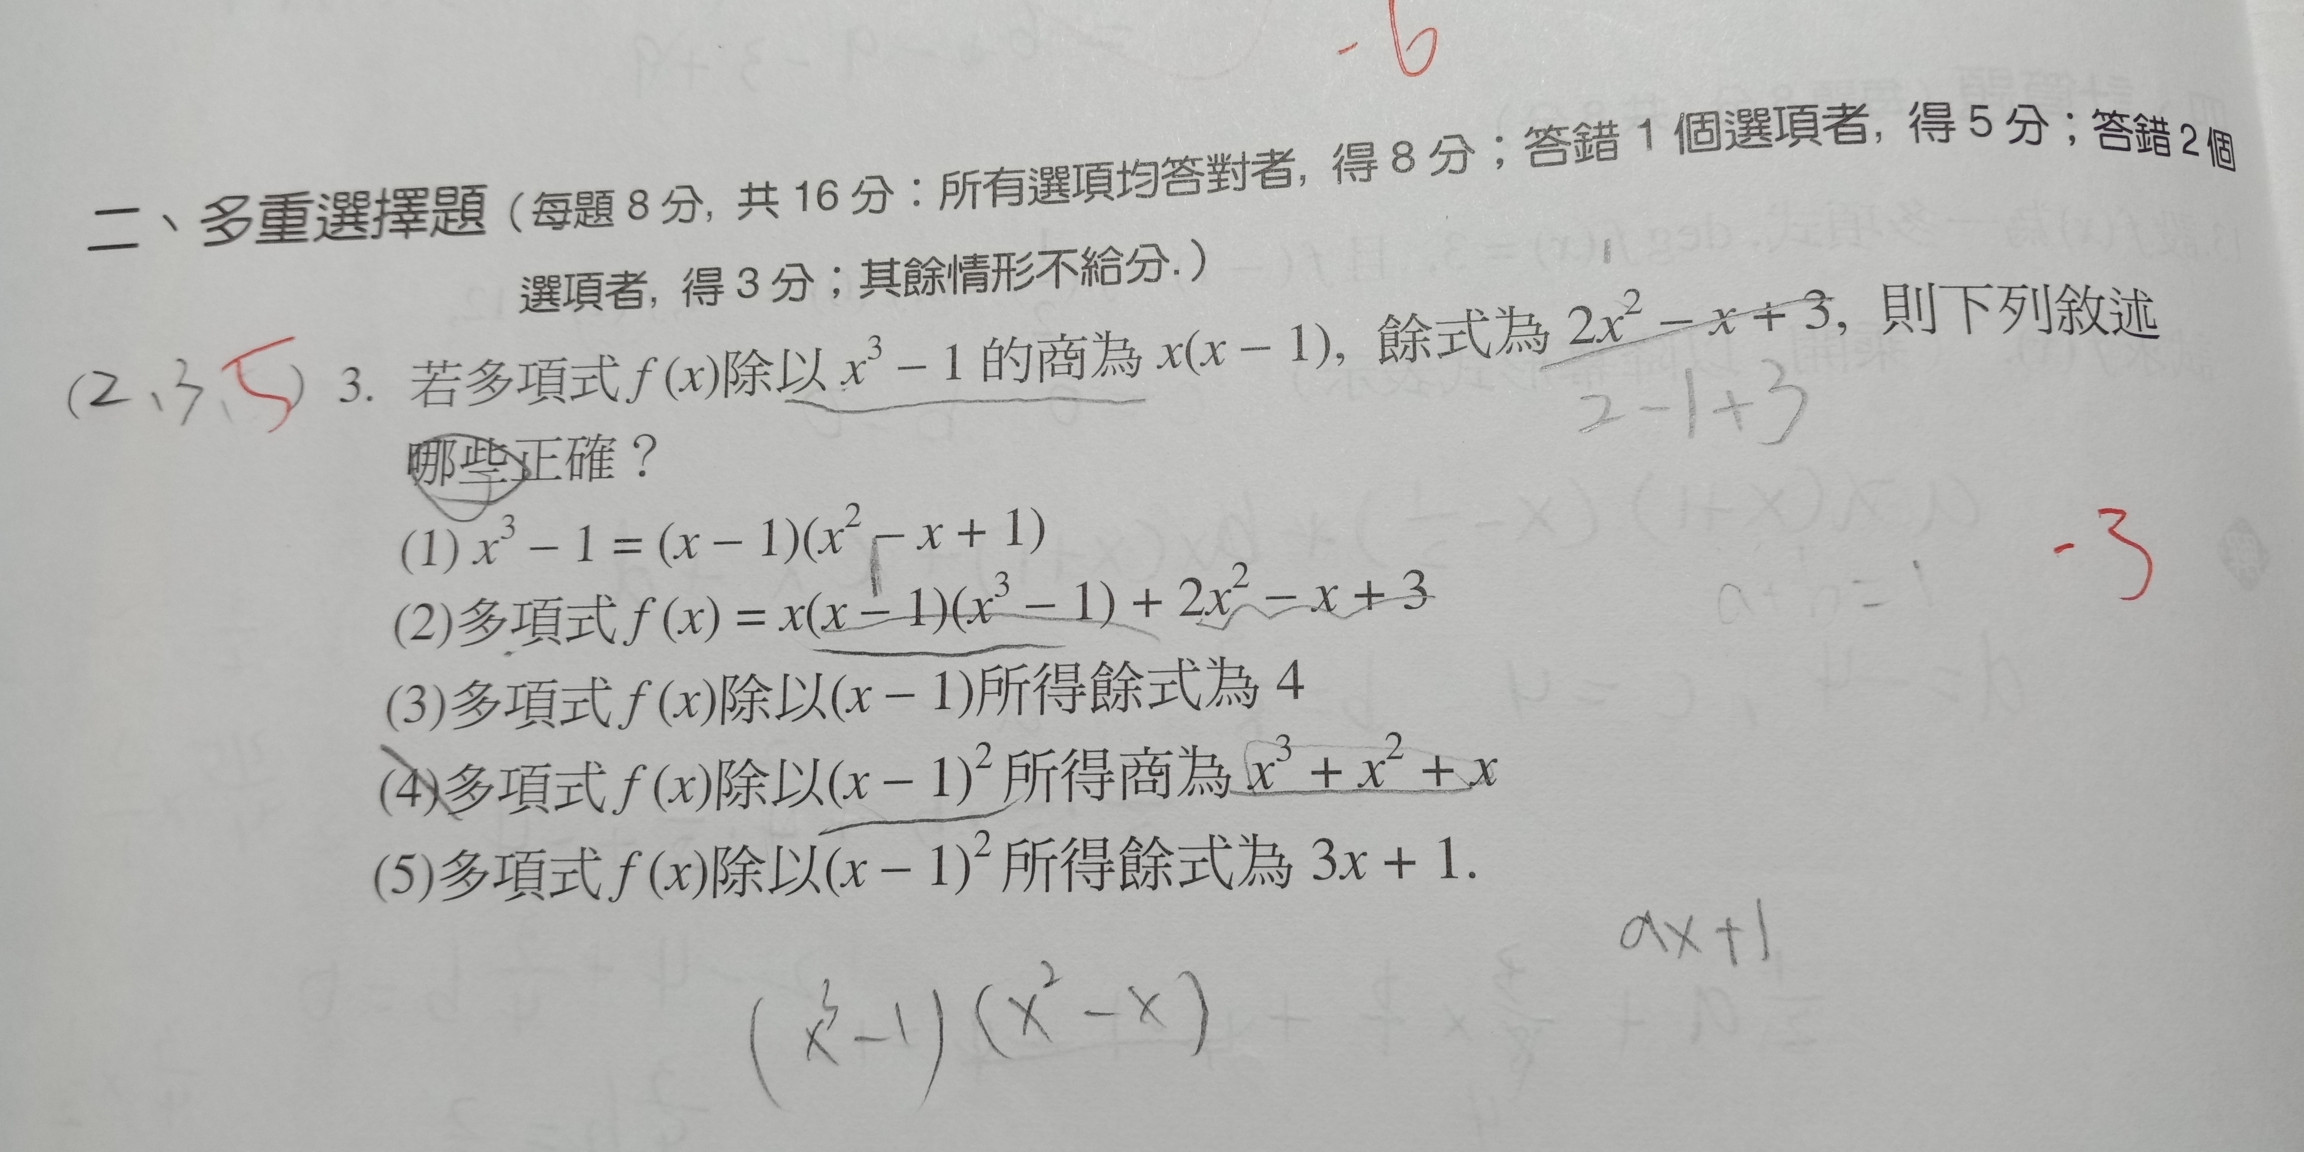 -6
二、多重選擇題（每題 8 分, 共 16 分：所有選項均答對者, 得 8 分；答錯 1 個選項者, 得 5 分；答錯 2 個
選項者, 得 3 分；其餘情形不給分.）
(2、3、5) 3. 若多項式 f(x)除以 x³ − 1 的商為 x(x − 1), 餘式為 2x² − x + 3, 則下列敘述
2-1+3
哪些正確？
(1) x³ − 1 = (x − 1)(x² − x + 1)
-3
(2)多項式 f(x) = x(x − 1)(x³ − 1) + 2x² − x + 3
(3)多項式 f(x)除以(x − 1)所得餘式為 4
(4)多項式 f(x)除以(x − 1)²所得商為 x³ + x² + x
(5)多項式 f(x)除以(x − 1)²所得餘式為 3x + 1.
ax+1
(x³-1)(x²-x)